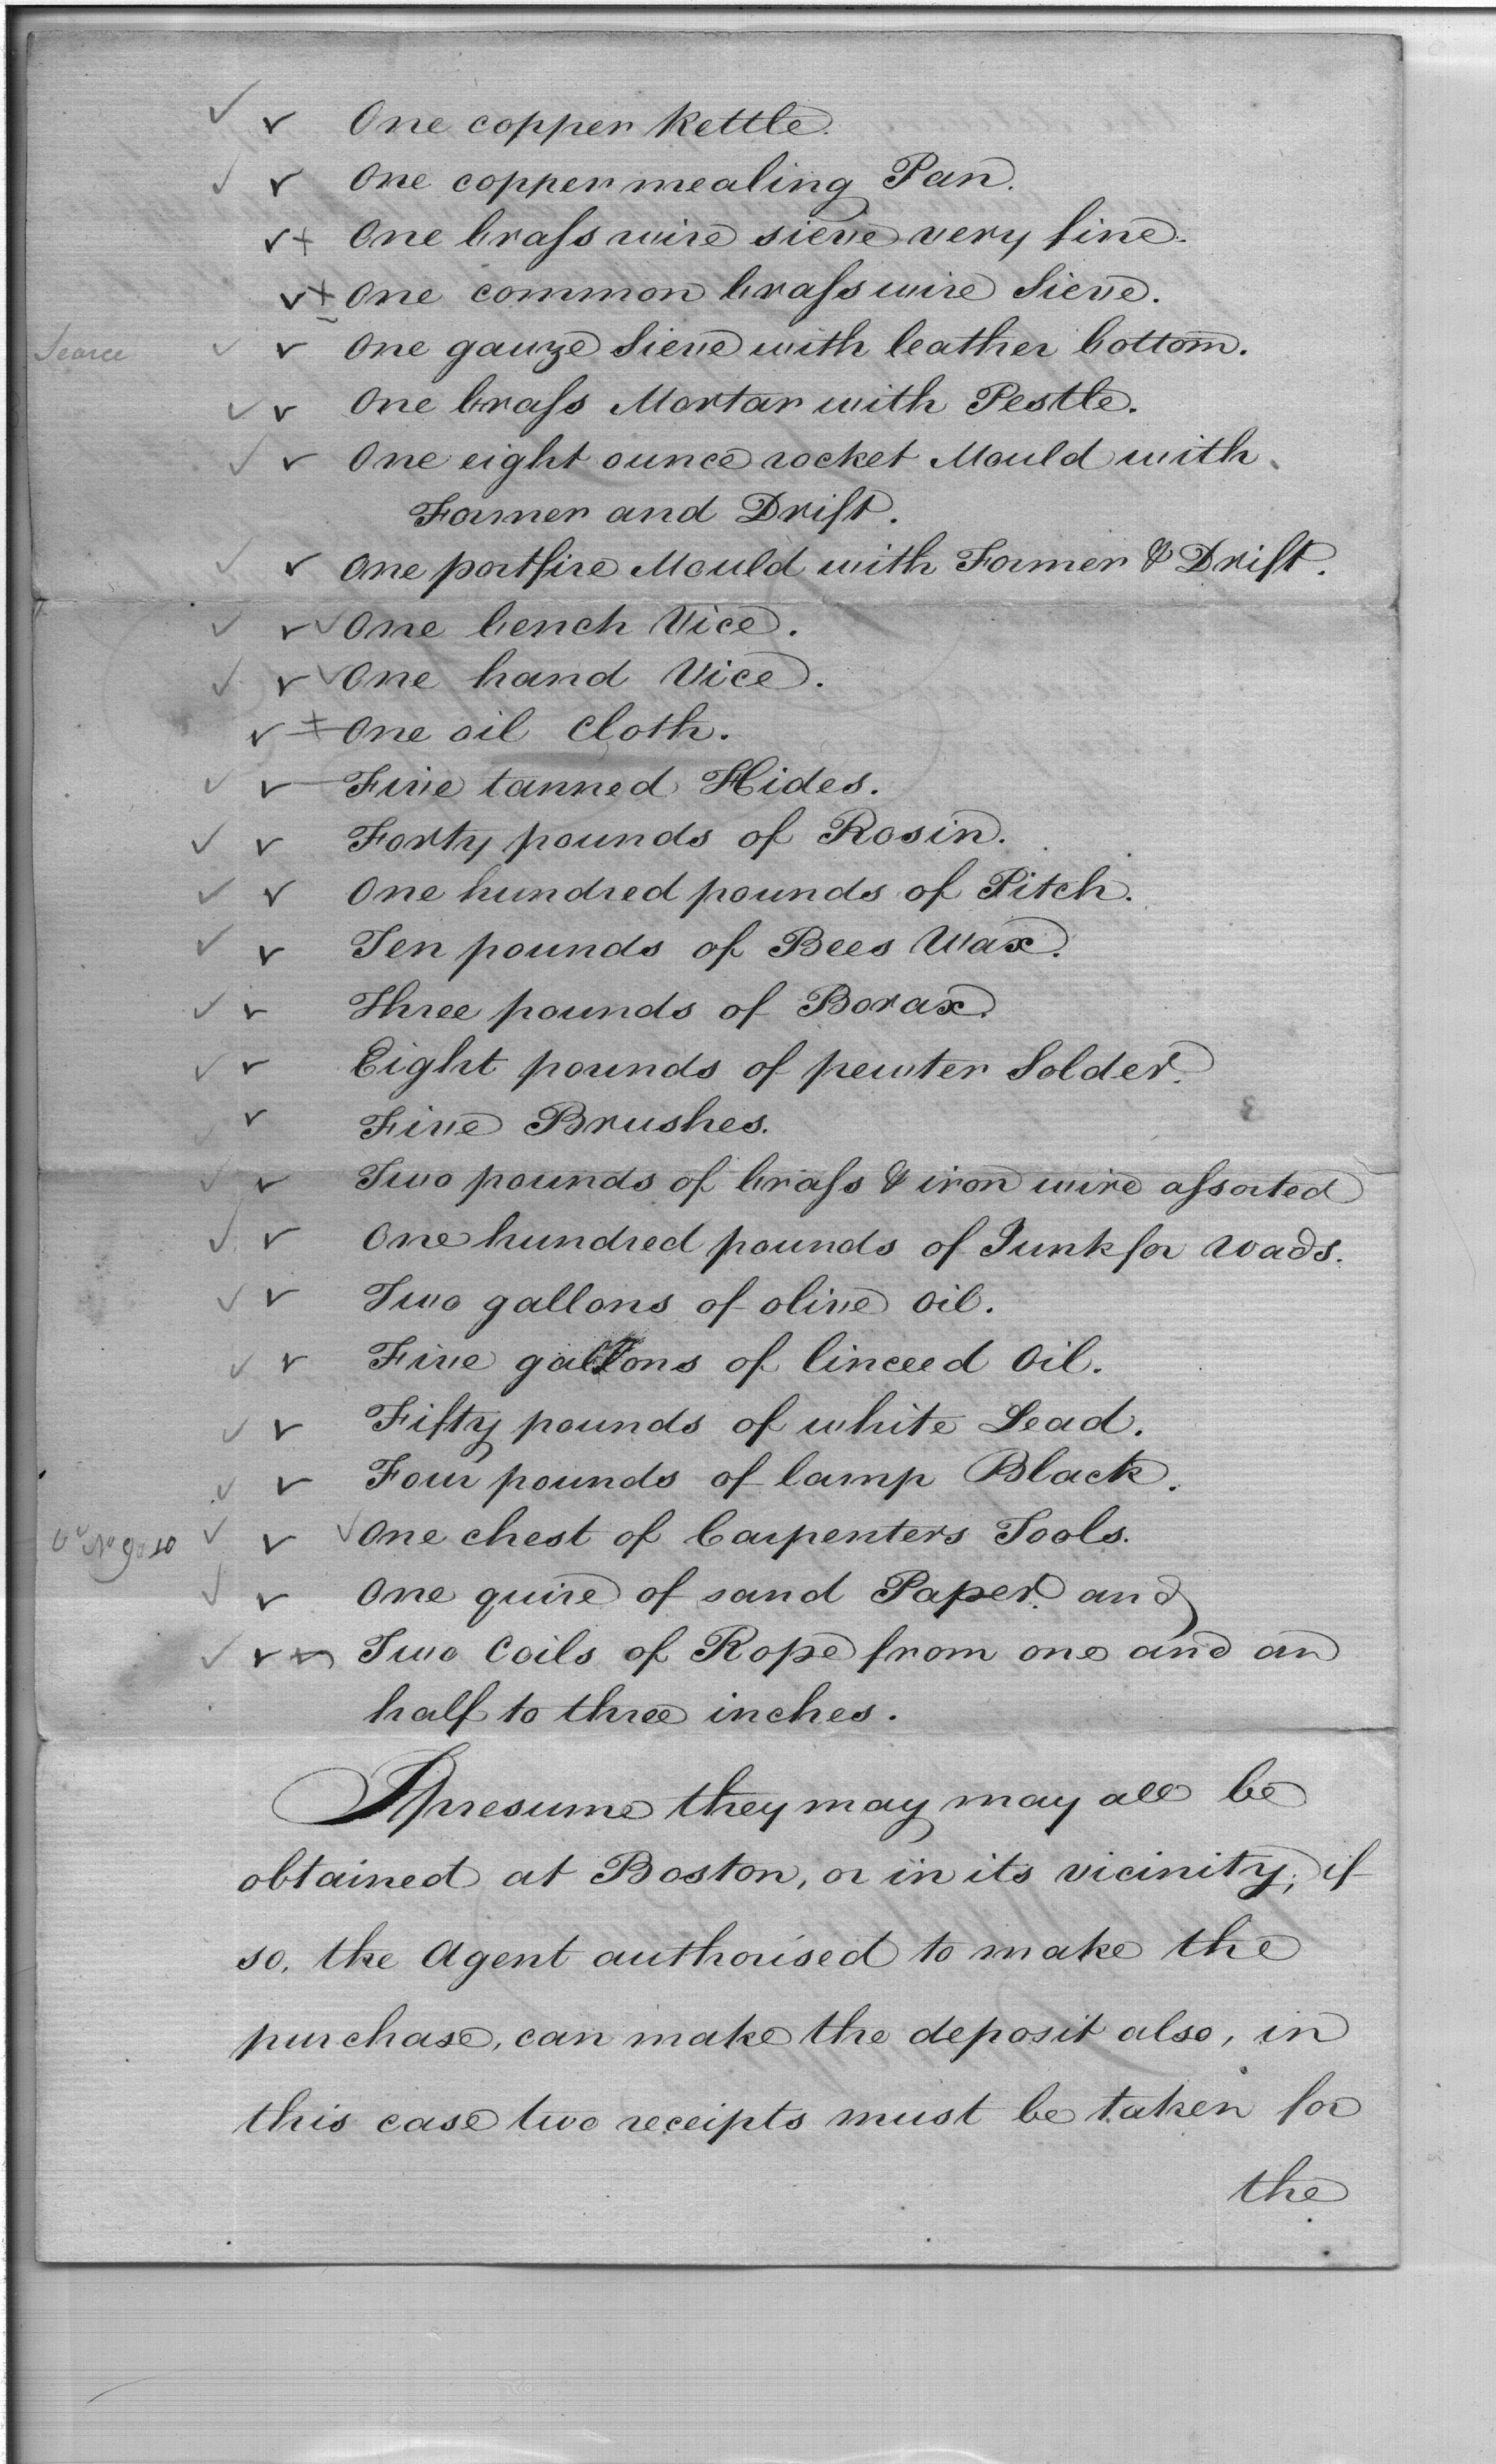 ✓ ✓ One copper Kettle.
✓ ✓ One copper mealing Pan.
✓ + One braſs wire sieve very fine.
✓ + One common braſs wire Sieve.
Searce ✓ ✓ One gauze Sieve with leather bottom.
✓ ✓ One braſs Mortar with Pestle.
✓ ✓ One eight ounce rocket Mould with
Former and Drift.
✓ ✓ One portfire Mould with Former & Drift.
✓ ✓ ✓ One bench Vice.
✓ ✓ ✓ One hand Vice.
✓ + One oil Cloth.
✓ ✓ Five tanned Hides.
✓ ✓ Forty pounds of Rosin.
✓ ✓ One hundred pounds of Pitch.
✓ ✓ Ten pounds of Bees Wax.
✓ ✓ Three pounds of Borax.
✓ ✓ Eight pounds of pewter Solder.
✓ ✓ Five Brushes.
✓ ✓ Two pounds of braſs & iron wire aſsorted
✓ ✓ One hundred pounds of Junk for Wads.
✓ ✓ Two gallons of olive Oil.
✓ ✓ Five gallons of linceed Oil.
✓ ✓ Fifty pounds of white Lead.
✓ ✓ Four pounds of lamp Black.
✓ ✓ ✓ One chest of Carpenters Tools.
✓ ✓ One quire of sand Paper. and
✓ ✓ Two Coils of Rope from one and an
half to three inches.
I presume they may may all be
obtained at Boston, or in its vicinity; if
so, the Agent authorised to make the
purchase, can make the deposit also, in
this case two receipts must be taken for
the